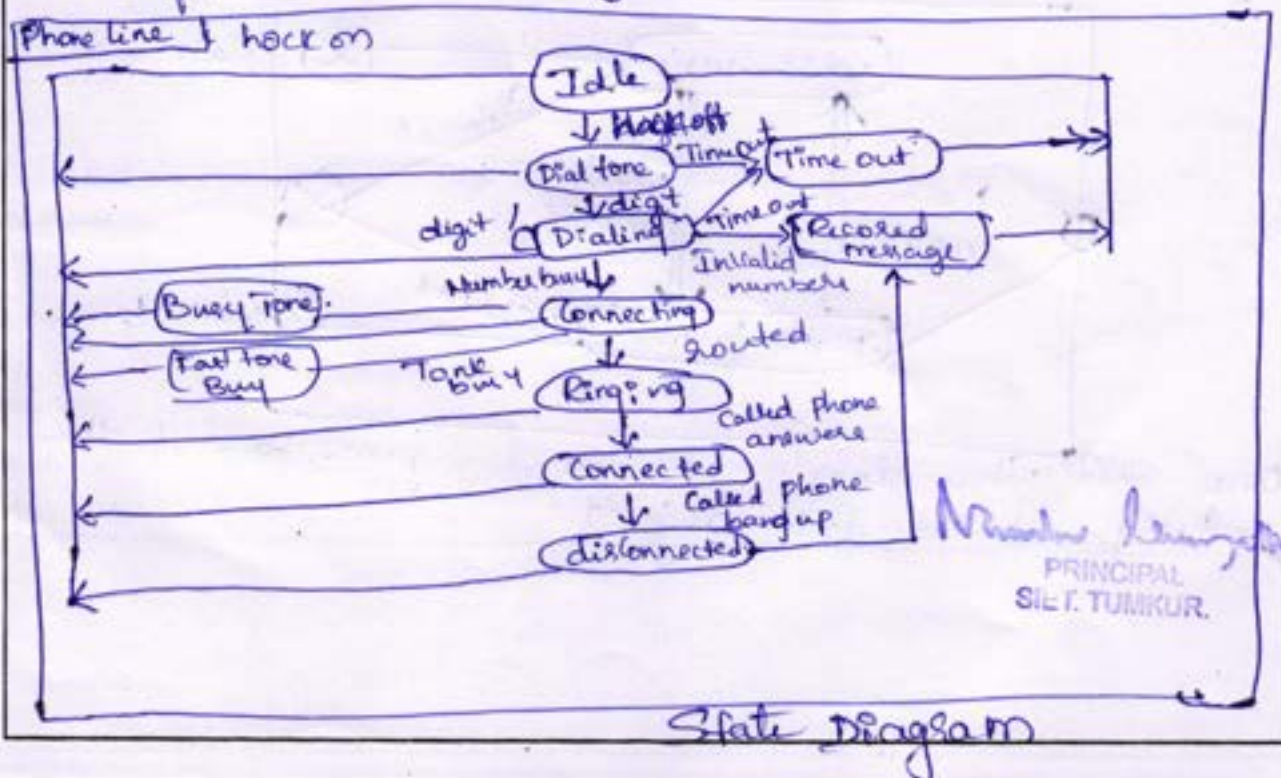 Phone line hock on
Idle
Hook off
Dial tone Time out Time out
digit
digit Dialing Time out Recored
message
Invalid
numbers
Number busy
Busy Tone. Connecting
routed
Fast tone
Busy
Tank
busy
Ringing
Called phone
answere
Connected
Called phone
hang up
disconnected
PRINCIPAL
SIET. TUMKUR.
State Diagram